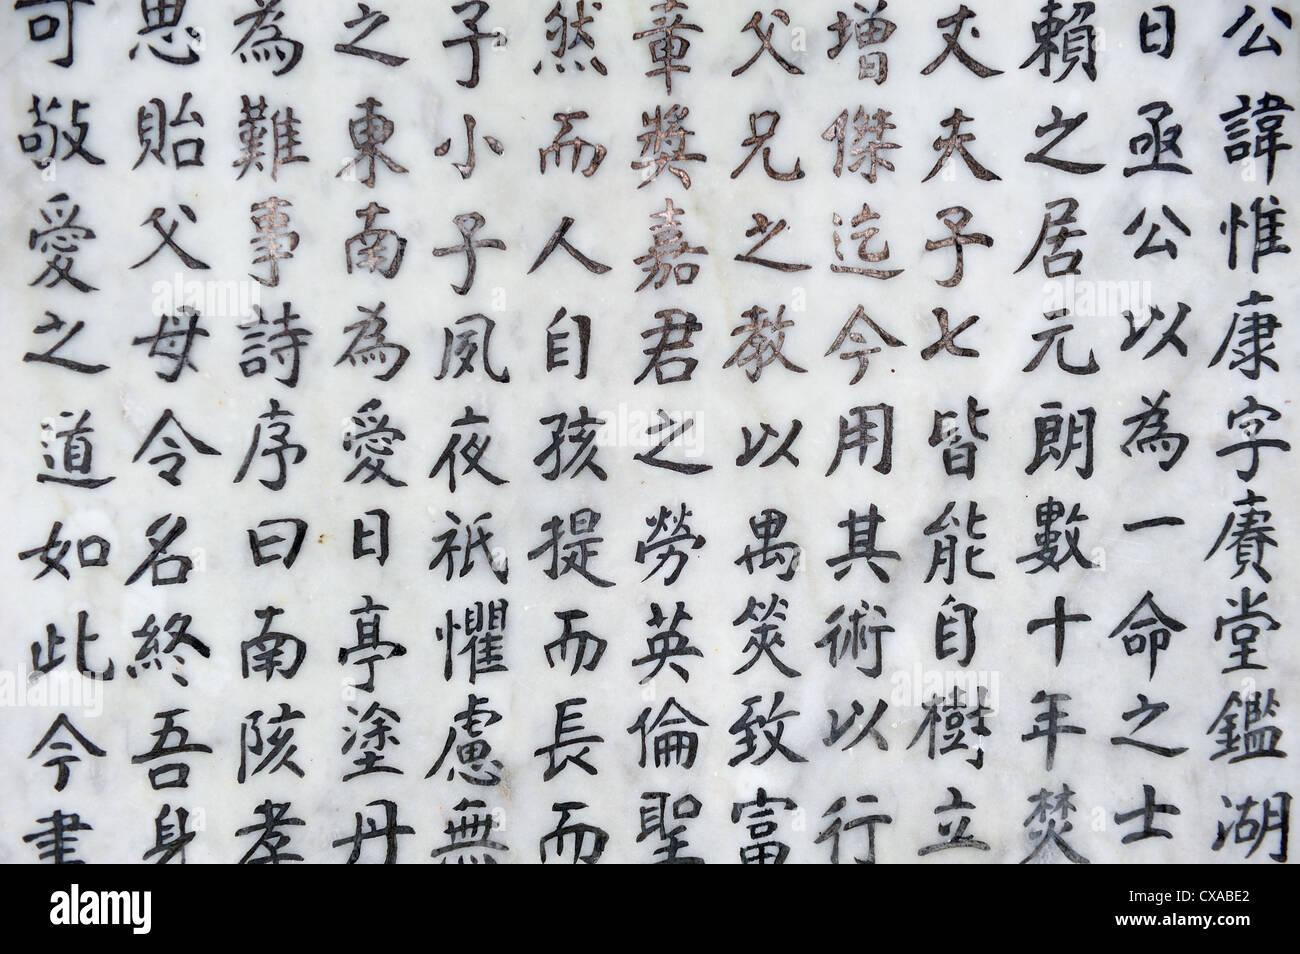 公諱惟康字賡堂鑑湖
日亟公以為一命之士
賴之居元朗數十年焚
丈夫子七皆能自樹立
增傑迄今用其術以行
父兄之教以禺筴致富
章獎嘉君之勞英倫聖
然而人自孩提而長而
子小子夙夜祇懼慮無
之東南為愛日亭塗丹
為難事詩序曰南陔孝
思貽父母令名終吾身
可敬愛之道如此今書
alamy
alamy
Image ID: CXABE2
www.alamy.com